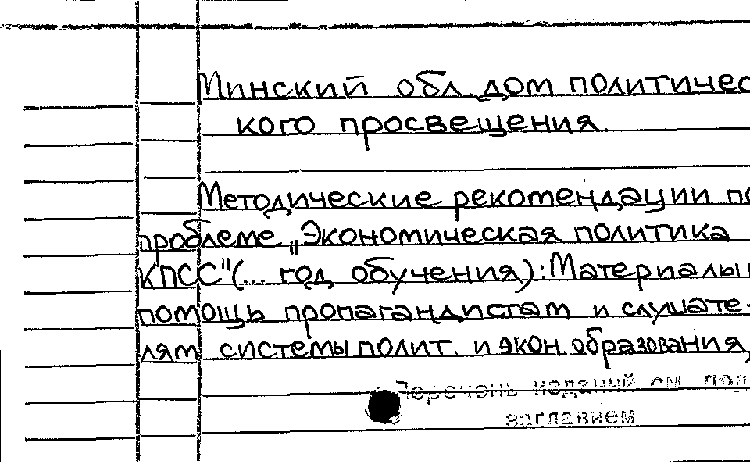 Минский обл. дом политичес
кого просвещения.
Методические рекомендации по
проблеме „Экономическая политика
КПСС"(... год обучения): Материалы
помощь пропагандистам и слушате-
лям системы полит. и экон. образования,
Перечень изданий см. под
заглавием